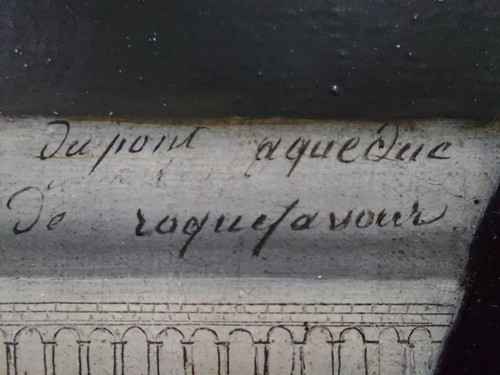 du pont aqueduc
De roquefavour